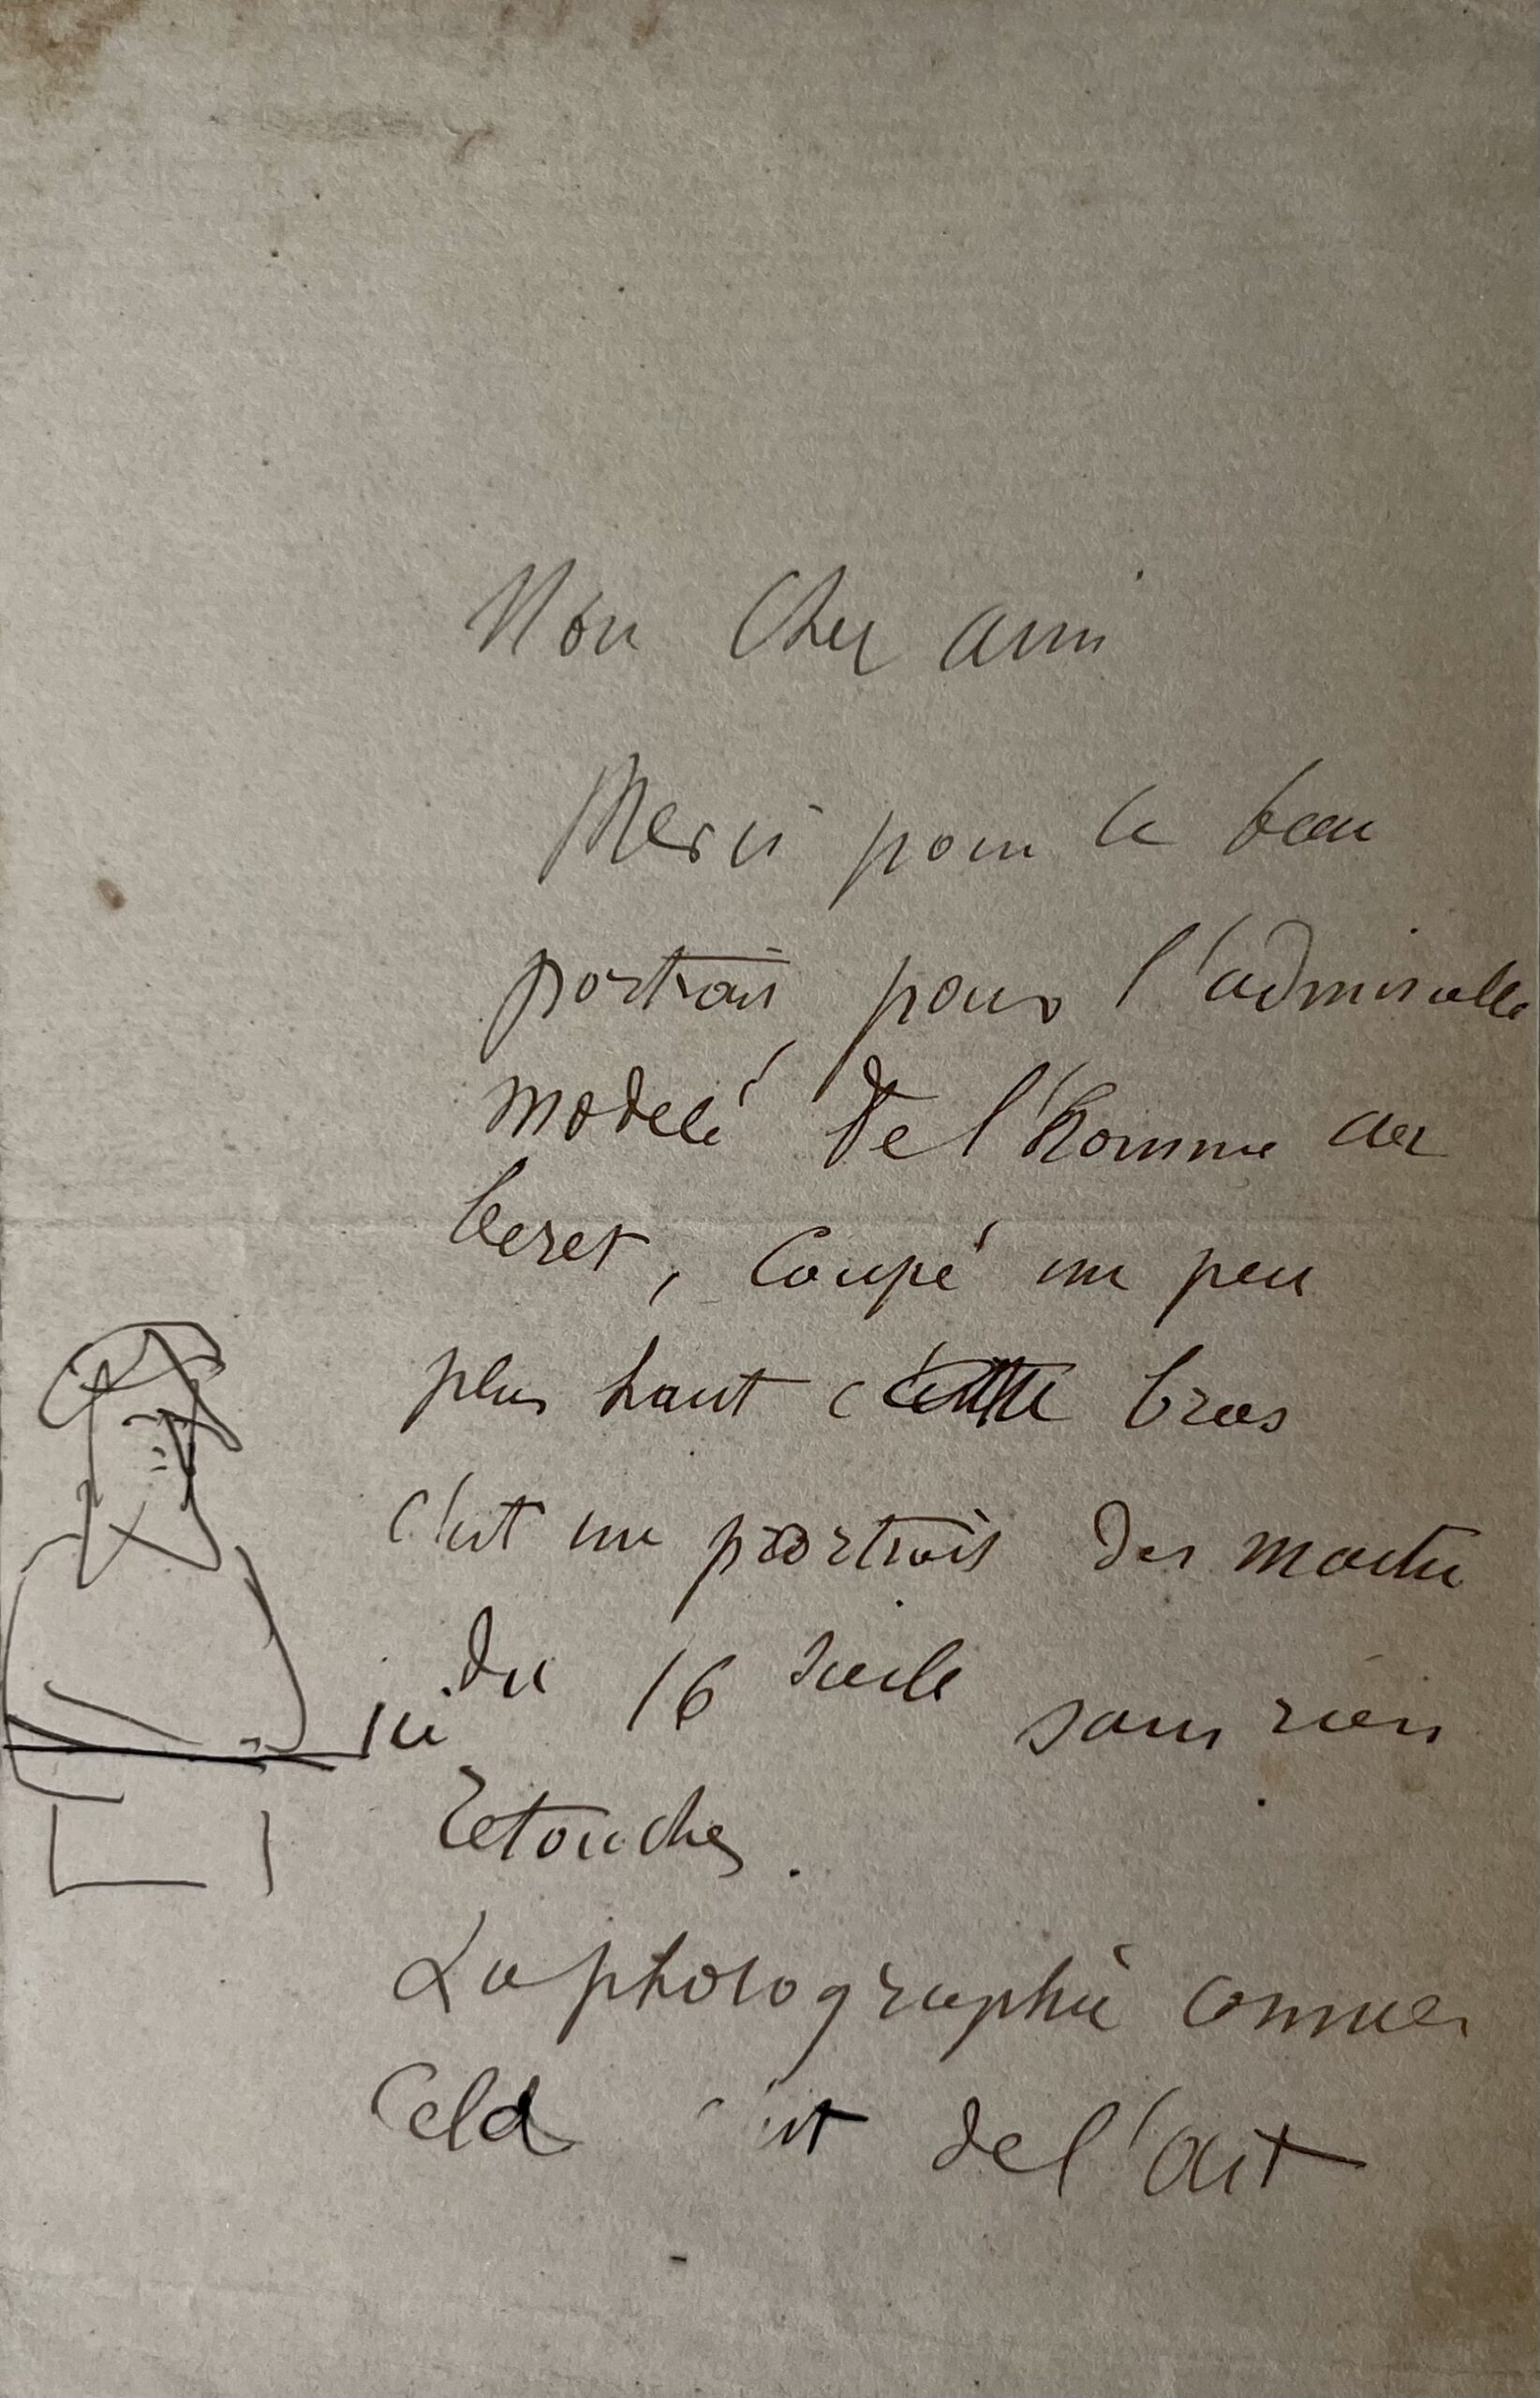 Mon Cher ami
Merci pour le beau
portrait, pour l'admirable
modelé de l'homme au
beret, Coupé un peu
plus haut bras
c'est un portrait des maitre
du 16 siecle sans rien
ici
retoucher.
La photographie comme
Cela c'est de l'art